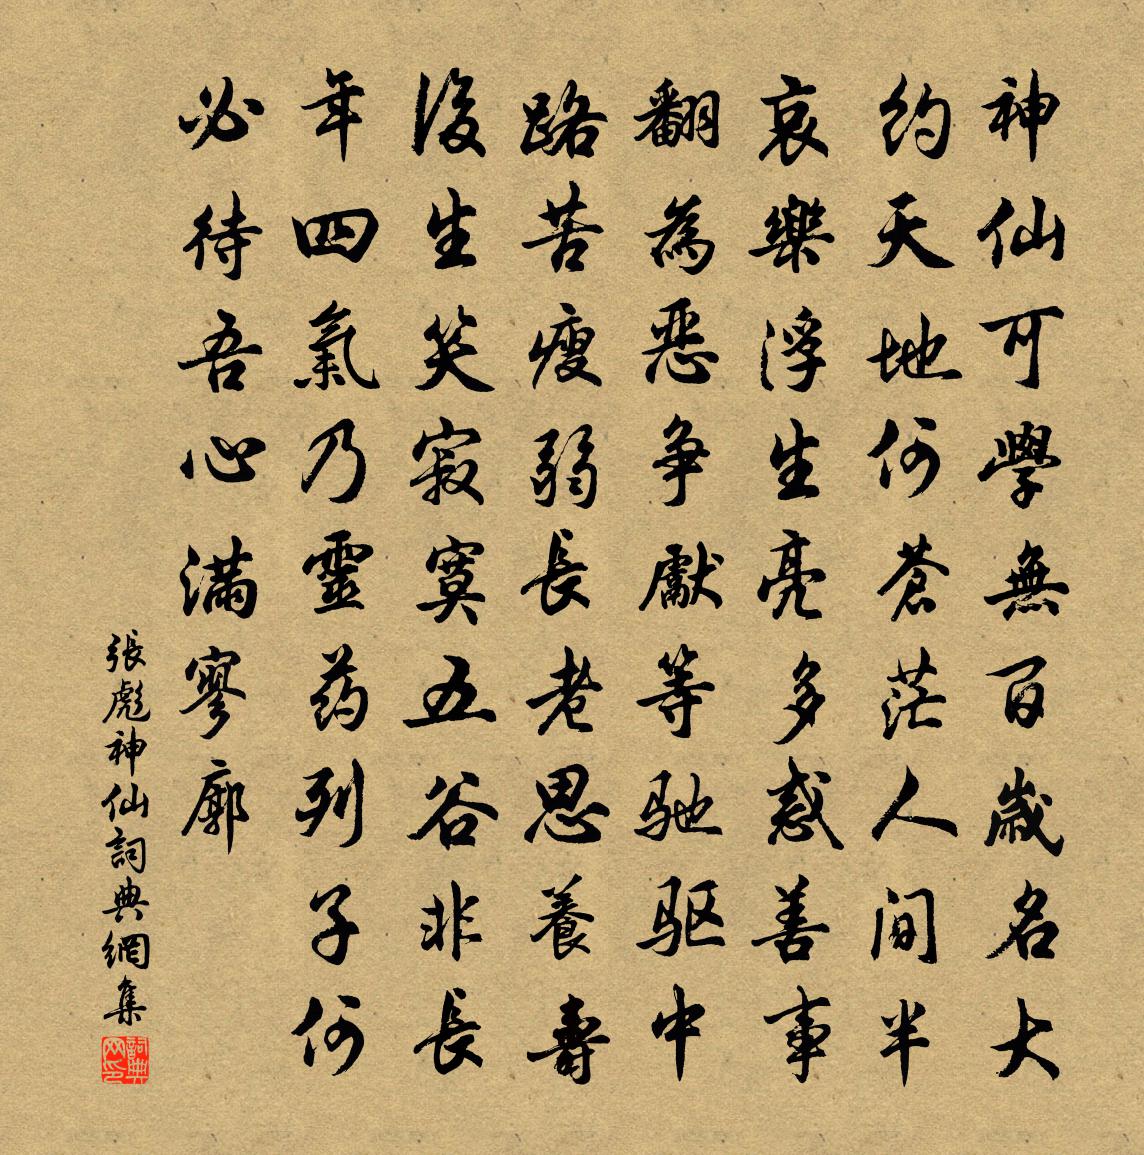 神仙可學無百歲名大
約天地何蒼茫人间半
哀樂浮生亮多惑善事
翻為惡争獻等驰驱中
路苦瘦弱長老思養壽
後生笑寂寞五谷非長
年四氣乃靈药列子何
必待吾心满寥廓
張彪神仙詞典網集
詞典网印